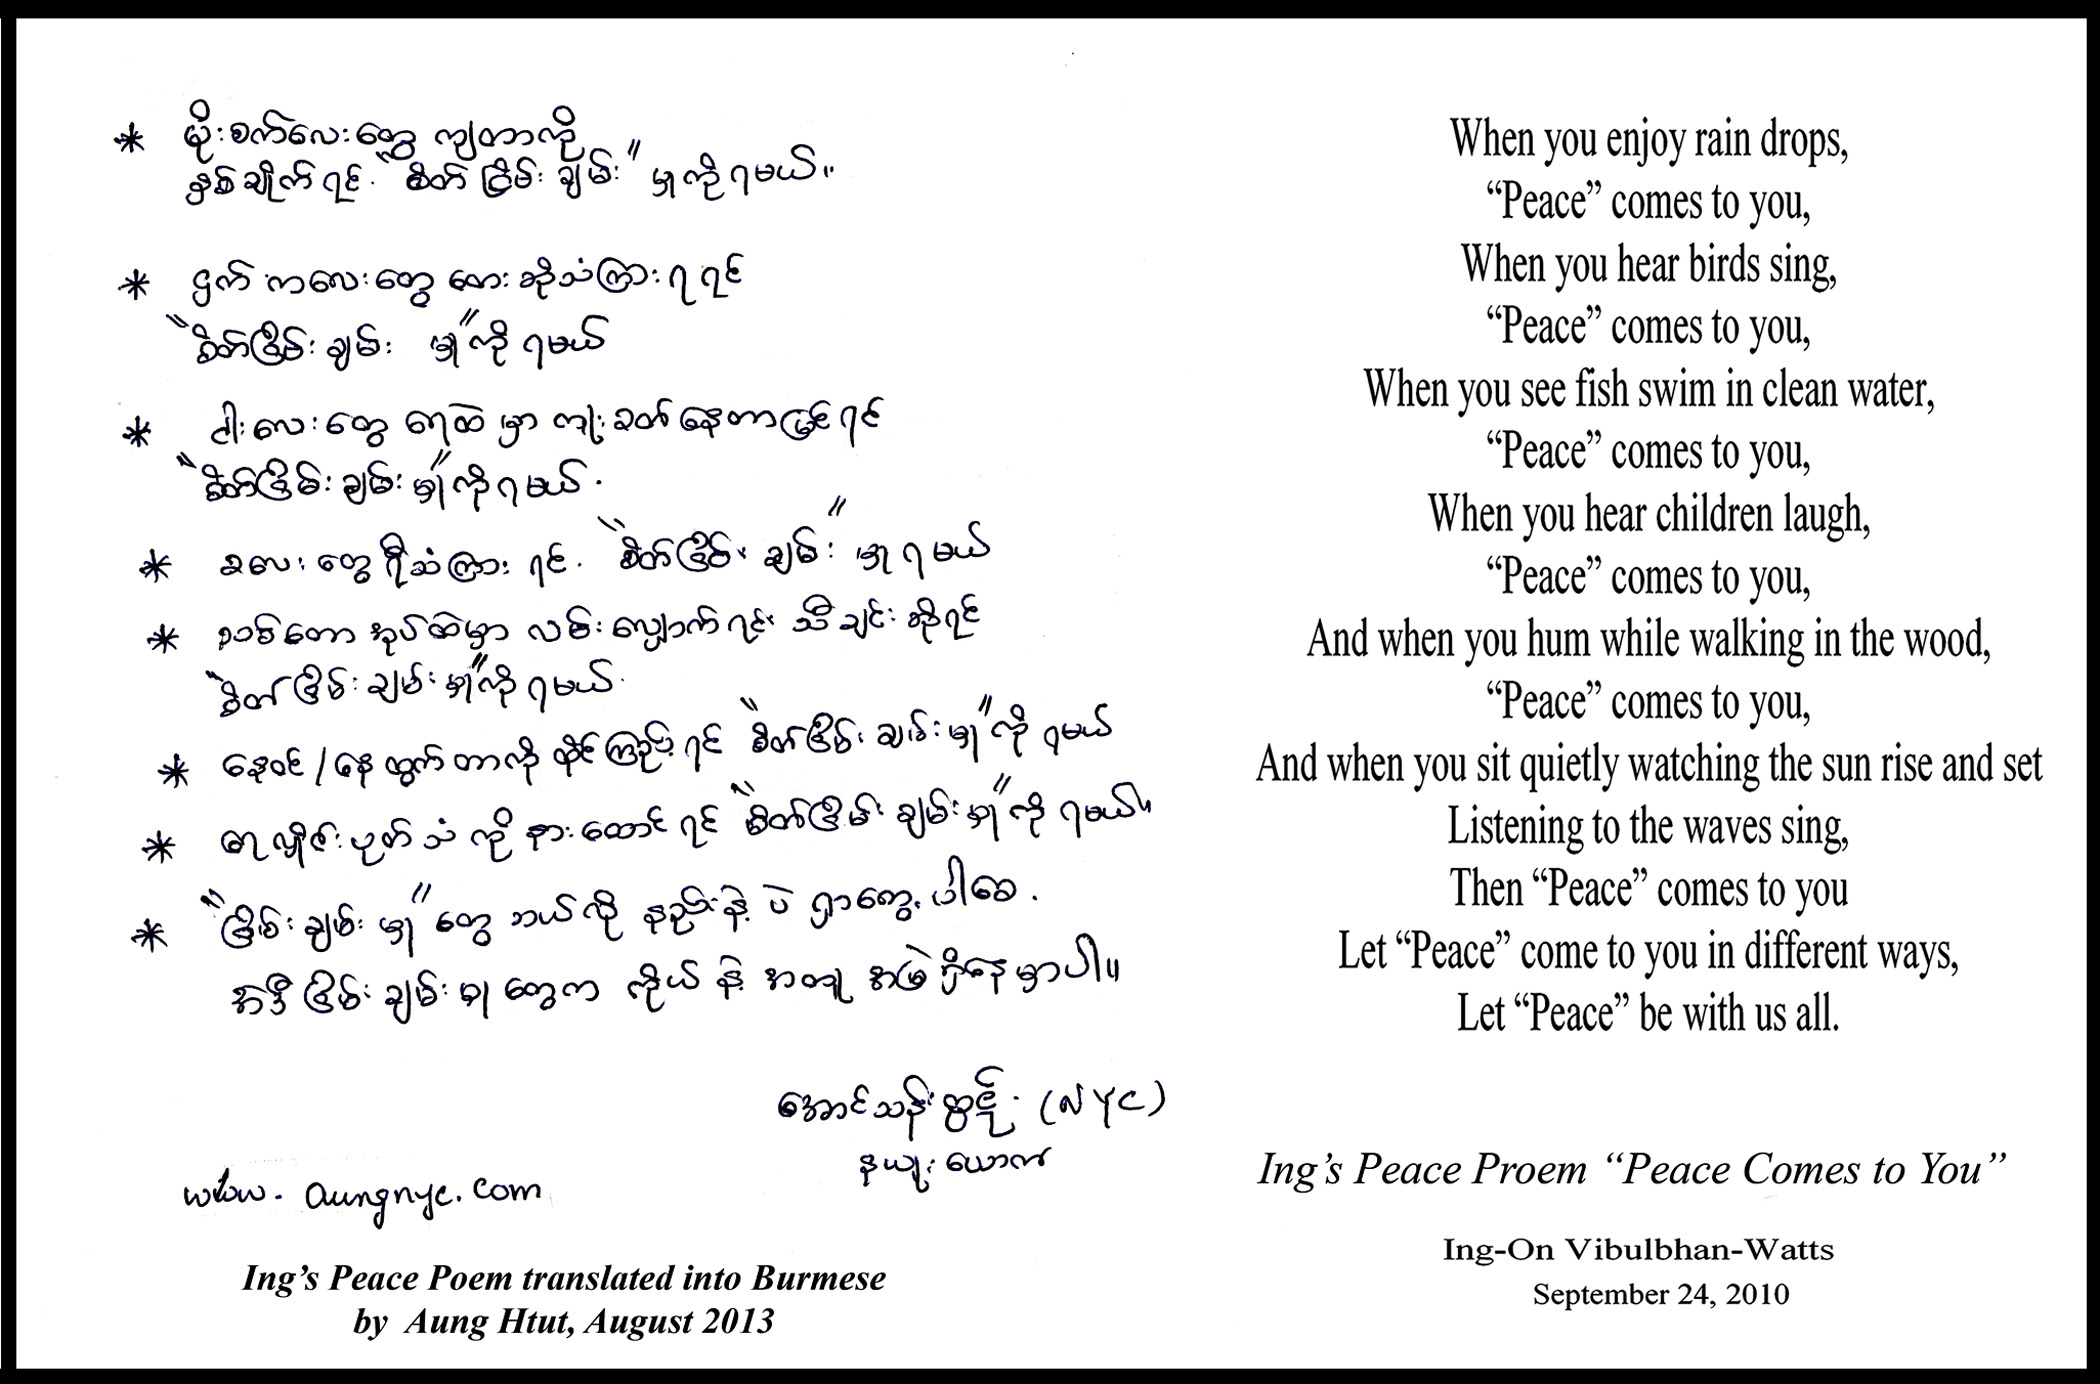 * မိုးစက်လေးတွေ ကျတာကို
နှစ်ချိုက်ရင် "စိတ်ငြိမ်းချမ်း" မှုကိုရမယ်။
* ငှက်ကလေးတွေ တေးဆိုသံကြားရရင်
"စိတ်ငြိမ်းချမ်း မှု"ကိုရမယ်
* ငါးလေးတွေ ရေထဲမှာ ကူးခတ်နေတာမြင်ရင်
"စိတ်ငြိမ်းချမ်းမှု"ကိုရမယ်.
* ခလေးတွေရီသံကြားရင်. "စိတ်ငြိမ်းချမ်း" မှုရမယ်
* သစ်တောအုပ်ထဲမှာ လမ်းလျှောက်ရင်း သီချင်းဆိုရင်
"စိတ်ငြိမ်းချမ်းမှု"ကိုရမယ်.
* နေဝင်/နေထွက်တာကို ထိုင်ကြည့်ရင် "စိတ်ငြိမ်းချမ်းမှု"ကိုရမယ်
* ရေလှိုင်းပုတ်သံကို နားထောင်ရင် "စိတ်ငြိမ်းချမ်းမှု"ကိုရမယ်။
* "ငြိမ်းချမ်းမှု"တွေဘယ်လိုနည်းနဲ့ပဲ ရှာတွေ့ပါစေ.
အဲဒီငြိမ်းချမ်းမှုတွေက ကိုယ်နဲ့အတူ အမြဲရှိနေမှာပါ။
(NYC)
နယူးယောက်
www.aungnyc.com
Ing's Peace Poem translated into Burmese
by Aung Htut, August 2013
When you enjoy rain drops,
“Peace” comes to you,
When you hear birds sing,
“Peace” comes to you,
When you see fish swim in clean water,
“Peace” comes to you,
When you hear children laugh,
“Peace” comes to you,
And when you hum while walking in the wood,
“Peace” comes to you,
And when you sit quietly watching the sun rise and set
Listening to the waves sing,
Then “Peace” comes to you
Let “Peace” come to you in different ways,
Let “Peace” be with us all.
Ing’s Peace Proem “Peace Comes to You”
Ing-On Vibulbhan-Watts
September 24, 2010